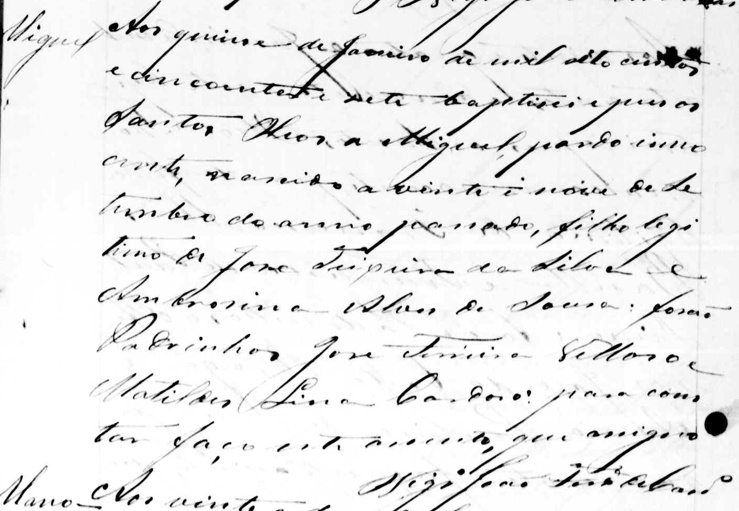 Miguel
Aos quinse de Janeiro de mil oito centos
e cincoenta e sete baptisei e pus os
Santos Oleos a Miguel, pardo inno
cente, nascido a vinte i nove de Se
tembro do anno passado, filho legi
timo de Jose Teixeira da Silva e
Ambrosina Alves de Sousa: forão
Padrinhos Jose Ferreira Velloso e
Matildes Lina Cardoso: para cons
tar faço este assento, que assigno
Vigº João José
Aos vinte